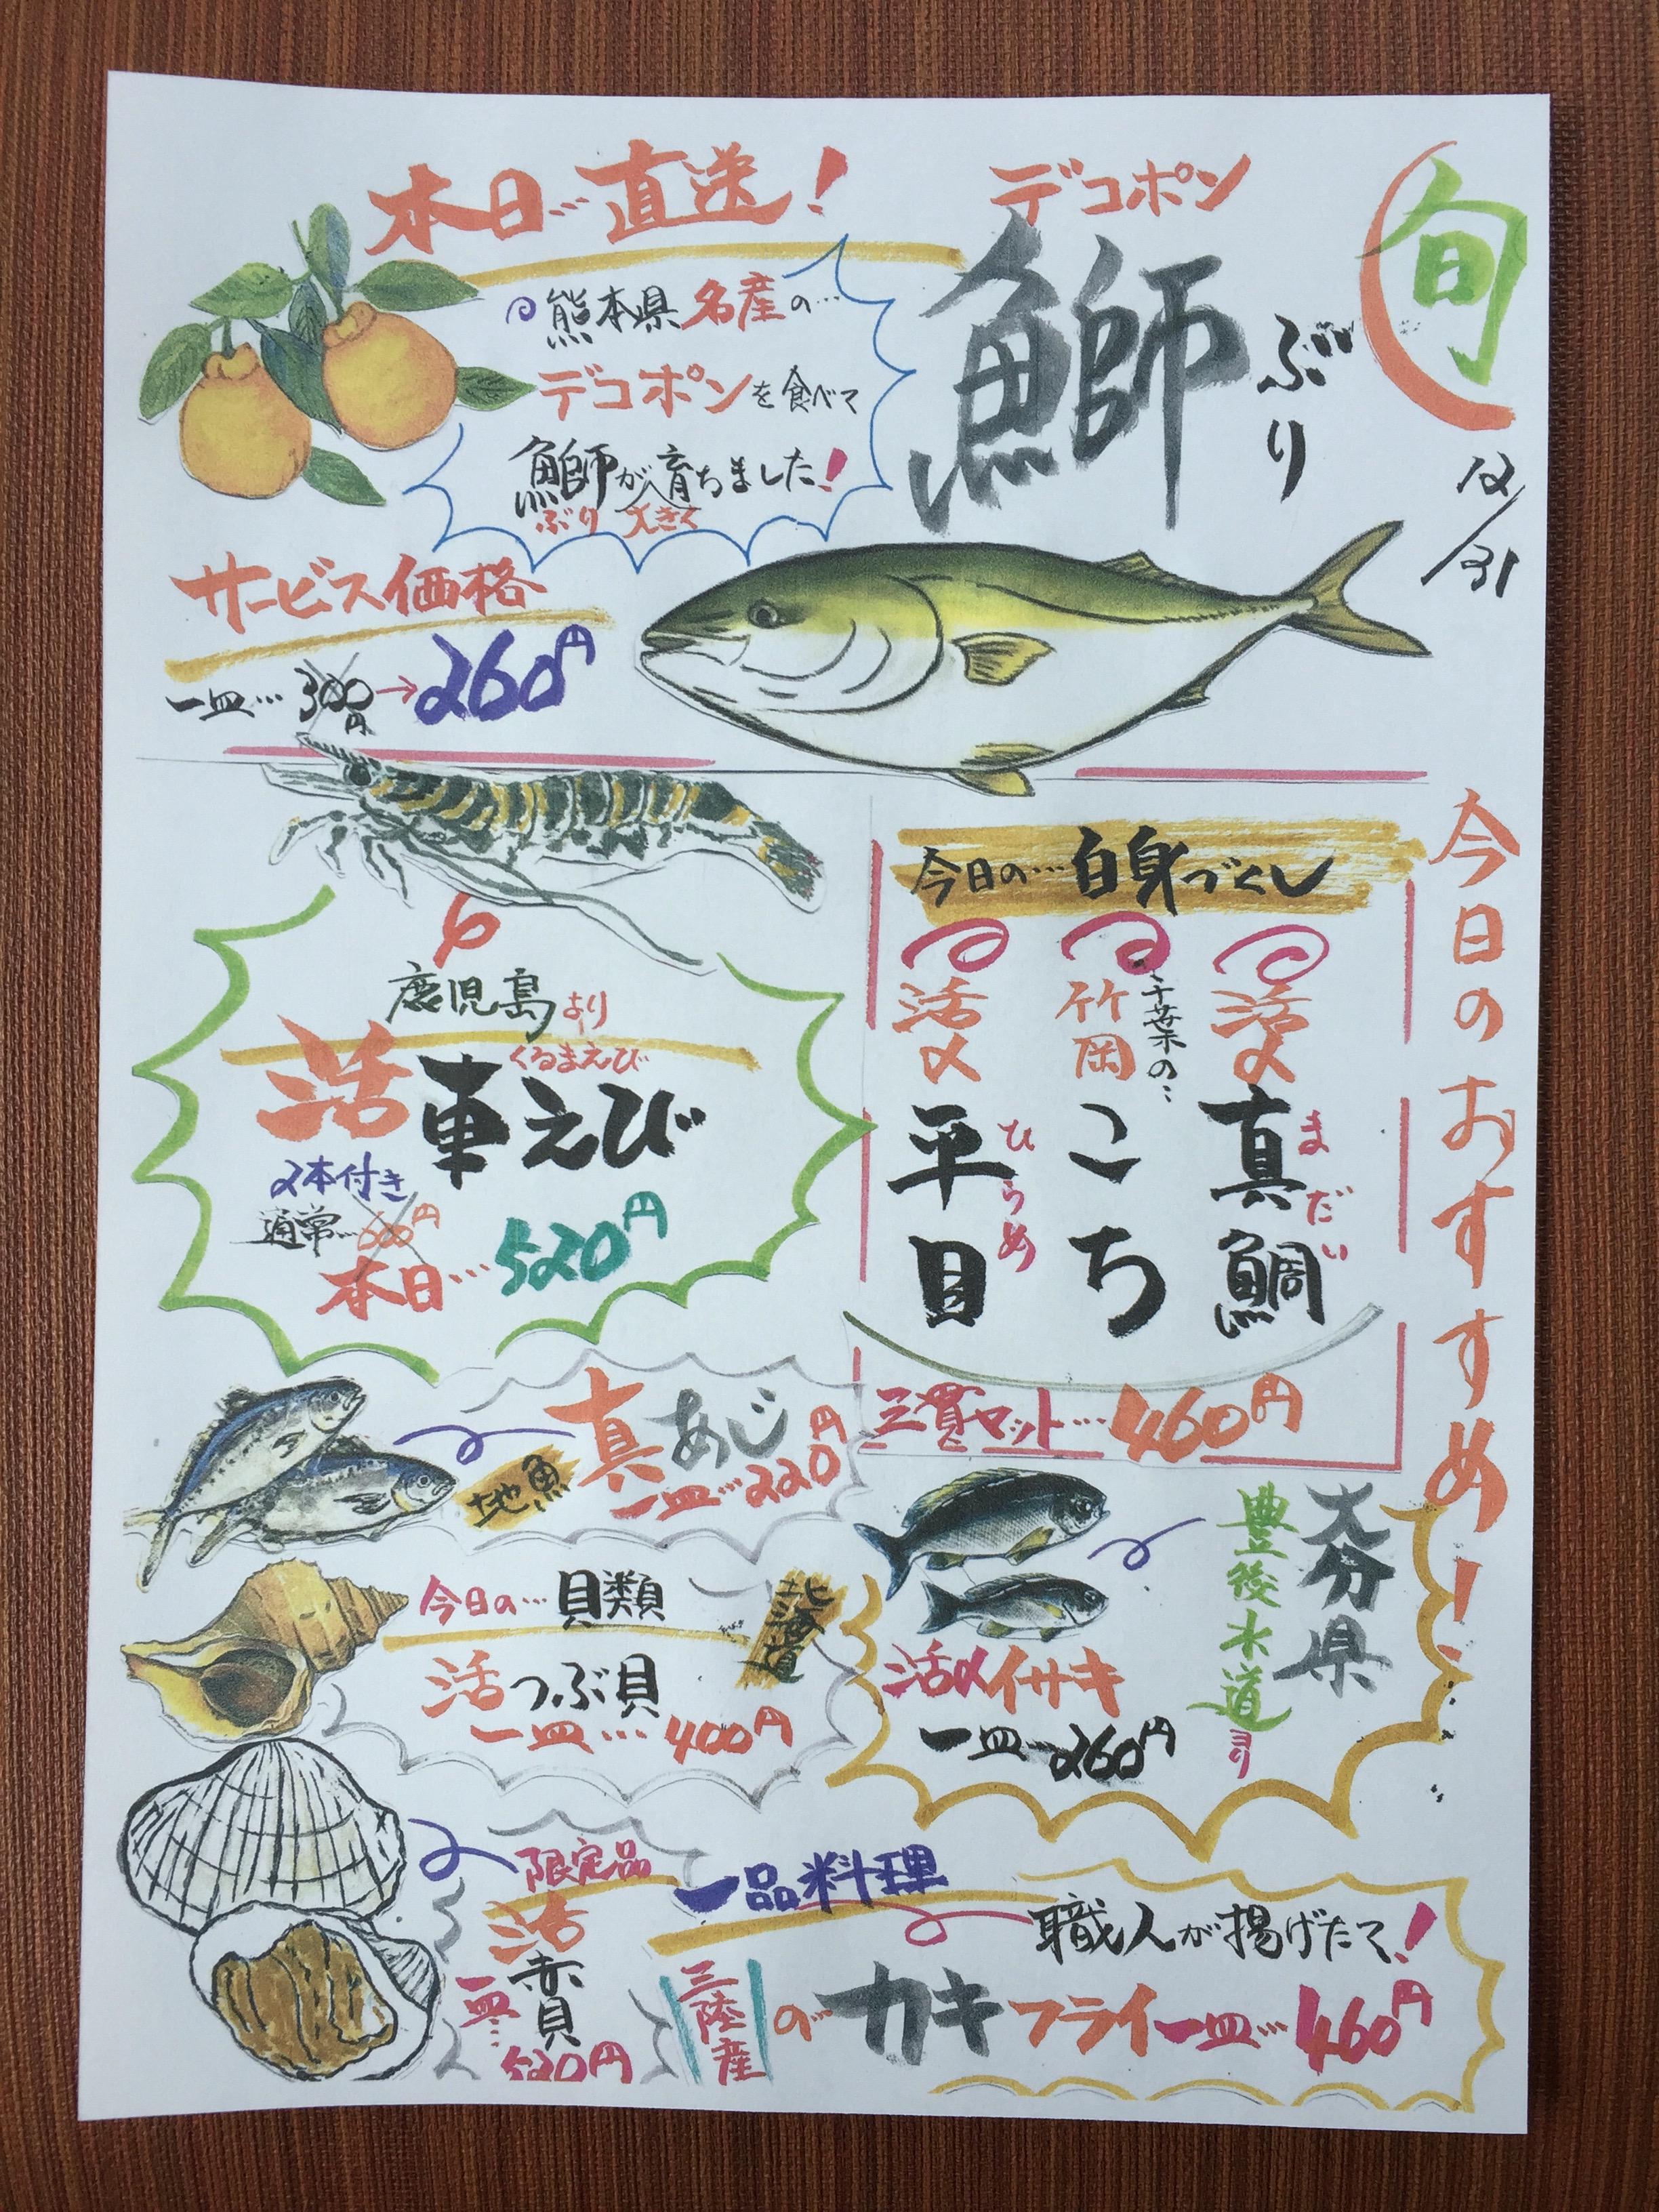 旬
12/31
今日のおすすめ!
本日…直送!
デコポン
鰤 ぶり
熊本県名産の…
デコポンを食べて
鰤が育ちました!
ぶり 大きく
サービス価格
一皿…300円→260円
鹿児島より
くるまえび
活車えび
2本付き
通常…600円
本日…520円
今日の…白身づくし
活〆真鯛
まだい
千葉の…
竹岡こち
活〆平目
ひらめ
三貫セット…460円
地魚
真あじ
一皿…220円
大分県
豊後水道ヨリ
活〆イサキ
一皿…260円
今日の…貝類
北海道
活つぶ貝
一皿…400円
限定品
活赤貝
一皿…520円
一品料理
職人が揚げたて!
三陸産のカキフライ一皿…460円